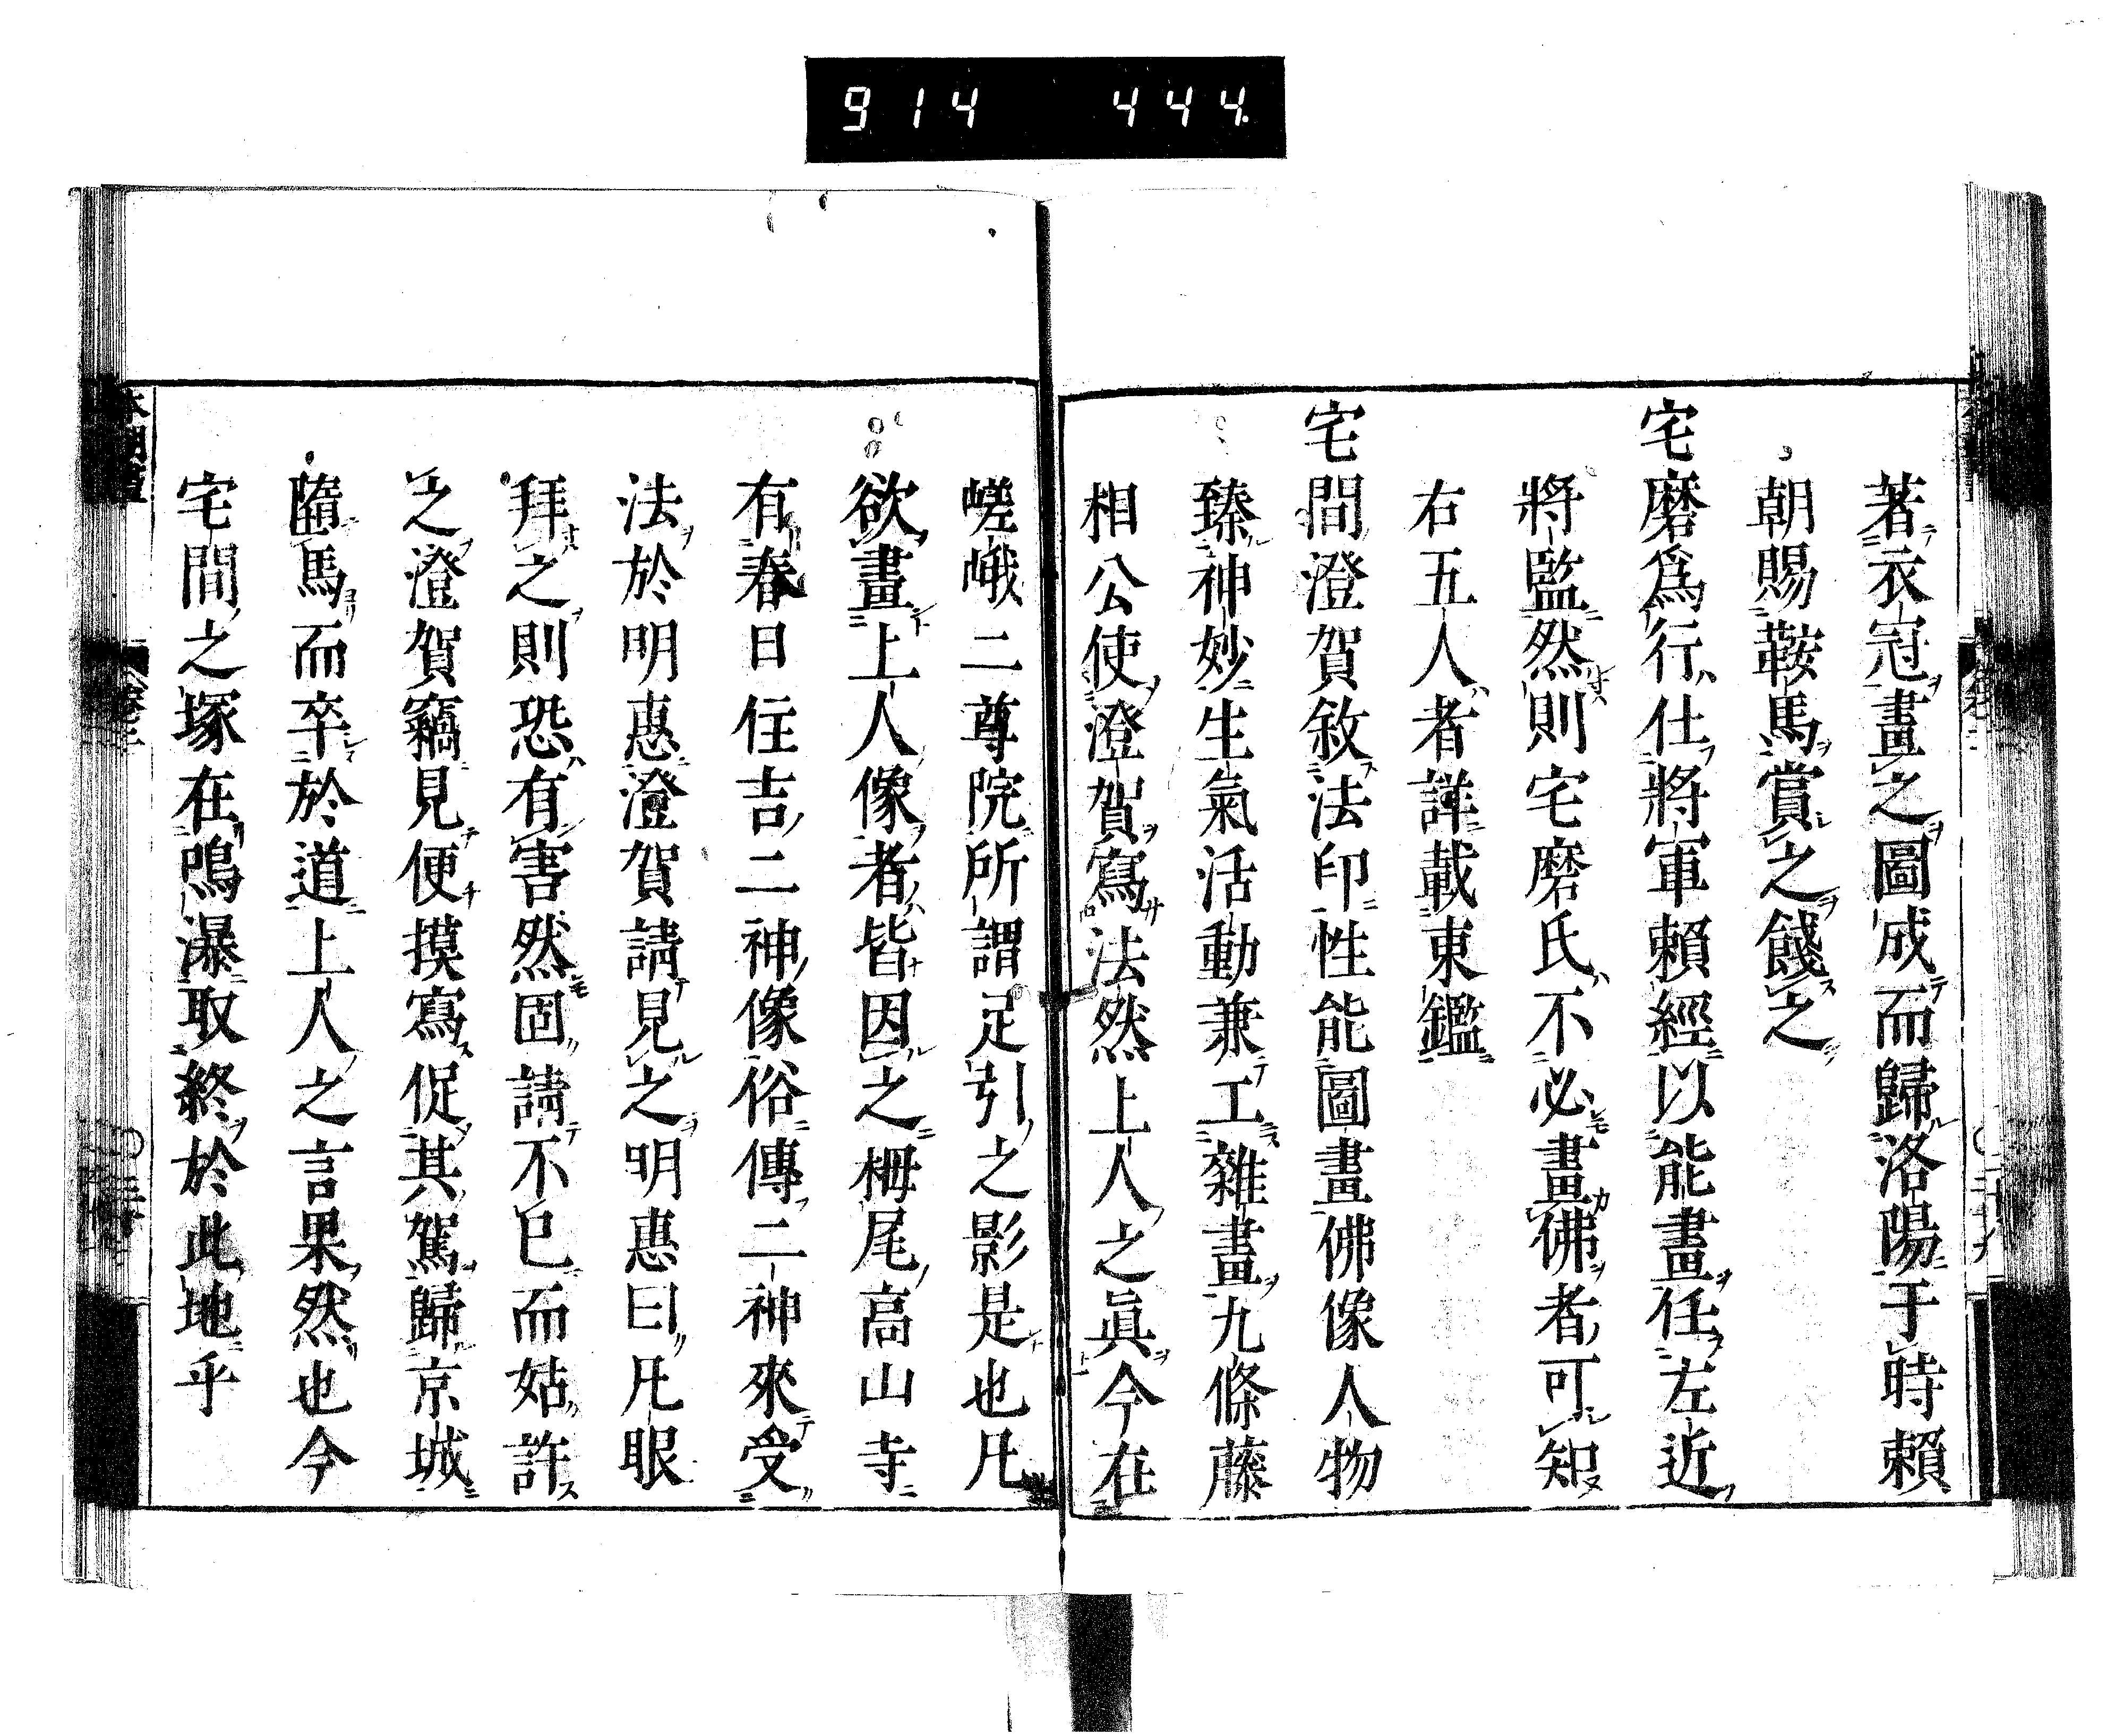 914 444.
著衣冠畫之圖成而歸洛陽于時賴
朝賜鞍馬賞之餞之
宅磨爲行仕將軍賴經以能畫任左近
將監然則宅磨氏不必畫佛者可知
右五人者詳載東鑑
宅間澄賀敘法印性能圖畫佛像人物
臻神妙生氣活動兼工雜畫九條藤
相公使澄賀寫法然上人之眞今在
嵯峨二尊院所謂足引之影是也凡
欲畫上人像者皆因之栂尾高山寺
有春日住吉二神像俗傳二神來受
法於明惠澄賀請見之明惠曰凡眼
拜之則恐有害然固請不已而姑許
之澄賀竊見便摸寫促其駕歸京城
墮馬而卒於道上人之言果然也今
宅間之塚在鳴瀑取終於此地乎